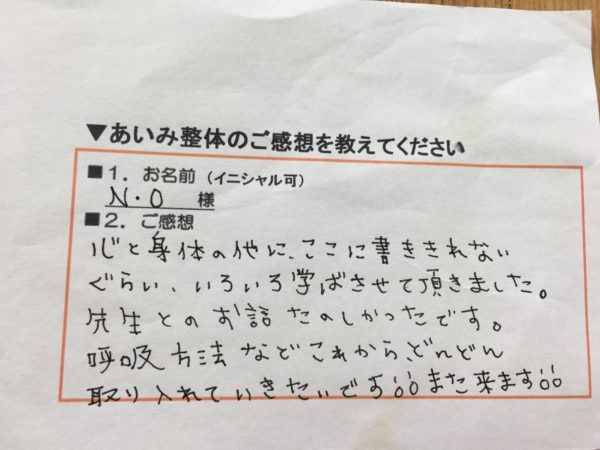 ▼あいみ整体のご感想を教えてください
■1．お名前（イニシャル可）
N・O 様
■2．ご感想
心と身体の他に、ここに書ききれない
ぐらい、いろいろ学ばさせて頂きました。
先生とのお話たのしかったです。
呼吸方法などこれから、どんどん
取り入れていきたいです!!また来ます!!